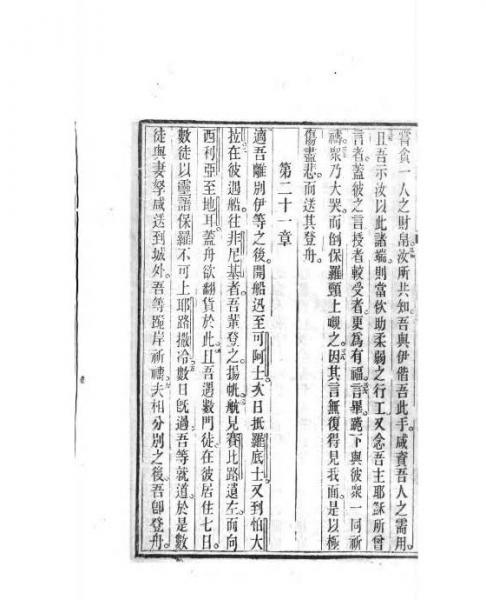 嘗貪一人之財帛汝所共知吾與伊偕吾此手咸資吾人之需用。
且吾示汝以此諸端則當伙助柔弱之行工又念吾主耶穌所曾
言者蓋彼之言授者較受者更爲有福言畢跪下與彼眾一同祈
禱眾乃大哭而倒保羅頸上嚫之因其言無復得見我面是以極
傷盡悲而送其登舟。
第二十一章
適吾離別伊等之後開船迅至可阿士次日抵羅底士又到怕大
拉在彼遇船往非尼基者吾輩登之揚帆航見賽比路遺左而向
西利亞至地耳蓋舟欲翻貨於此且吾遇數門徒在彼居住七日。
數徒以靈語保羅不可上耶路撒冷數日旣過吾等就道於是數
徒與妻孥咸送到城外吾等跪岸祈禱夫相分別之後吾卽登舟。